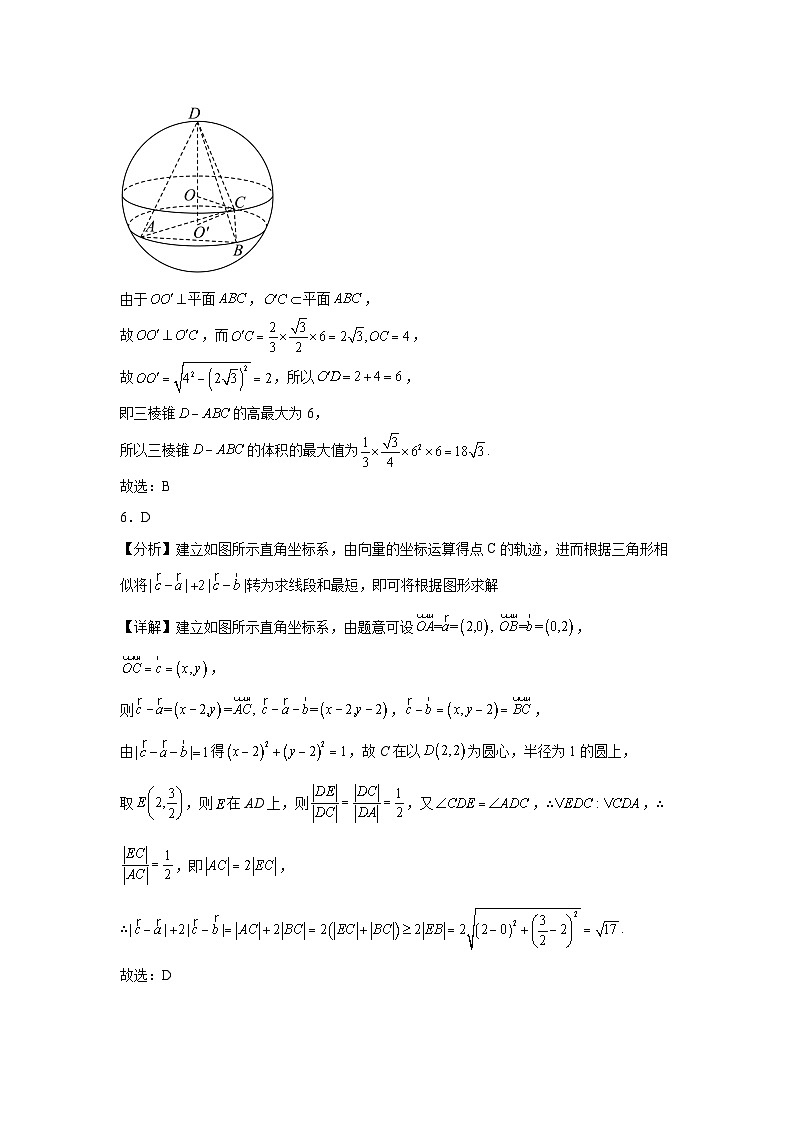 D
O
C
A
O′
B
由于 OO′ ⊥平面 ABC, O′C ⊂平面 ABC,
故 OO′ ⊥ O′C,而 O′C = 2/3 × √3/2 × 6 = 2√3, OC = 4,
故 OO′ = √(4² − (2√3)²) = 2,所以 O′D = 2 + 4 = 6,
即三棱锥 D − ABC 的高最大为 6,
所以三棱锥 D − ABC 的体积的最大值为 1/3 × √3/4 × 6² × 6 = 18√3.
故选:B
6.D
【分析】建立如图所示直角坐标系,由向量的坐标运算得点 C 的轨迹,进而根据三角形相
似将 |c − a| + 2|c − b| 转为求线段和最短,即可将根据图形求解
【详解】建立如图所示直角坐标系,由题意可设 OA = a = (2,0), OB = b = (0,2),
OC = c = (x, y),
则 c − a = (x − 2, y) = AC, c − a − b = (x − 2, y − 2), c − b = (x, y − 2) = BC,
由 |c − a − b| = 1 得 (x − 2)² + (y − 2)² = 1,故 C 在以 D(2,2) 为圆心,半径为 1 的圆上,
取 E(2, 3/2),则 E 在 AD 上,则 |DE|/|DC| = |DC|/|DA| = 1/2,又 ∠CDE = ∠ADC,∴ VEDC : VCDA,∴
|EC|/|AC| = 1/2,即 |AC| = 2|EC|,
∴ |c − a| + 2|c − b| = |AC| + 2|BC| = 2(|EC| + |BC|) ≥ 2|EB| = 2√((2 − 0)² + (3/2 − 2)²) = √17.
故选:D